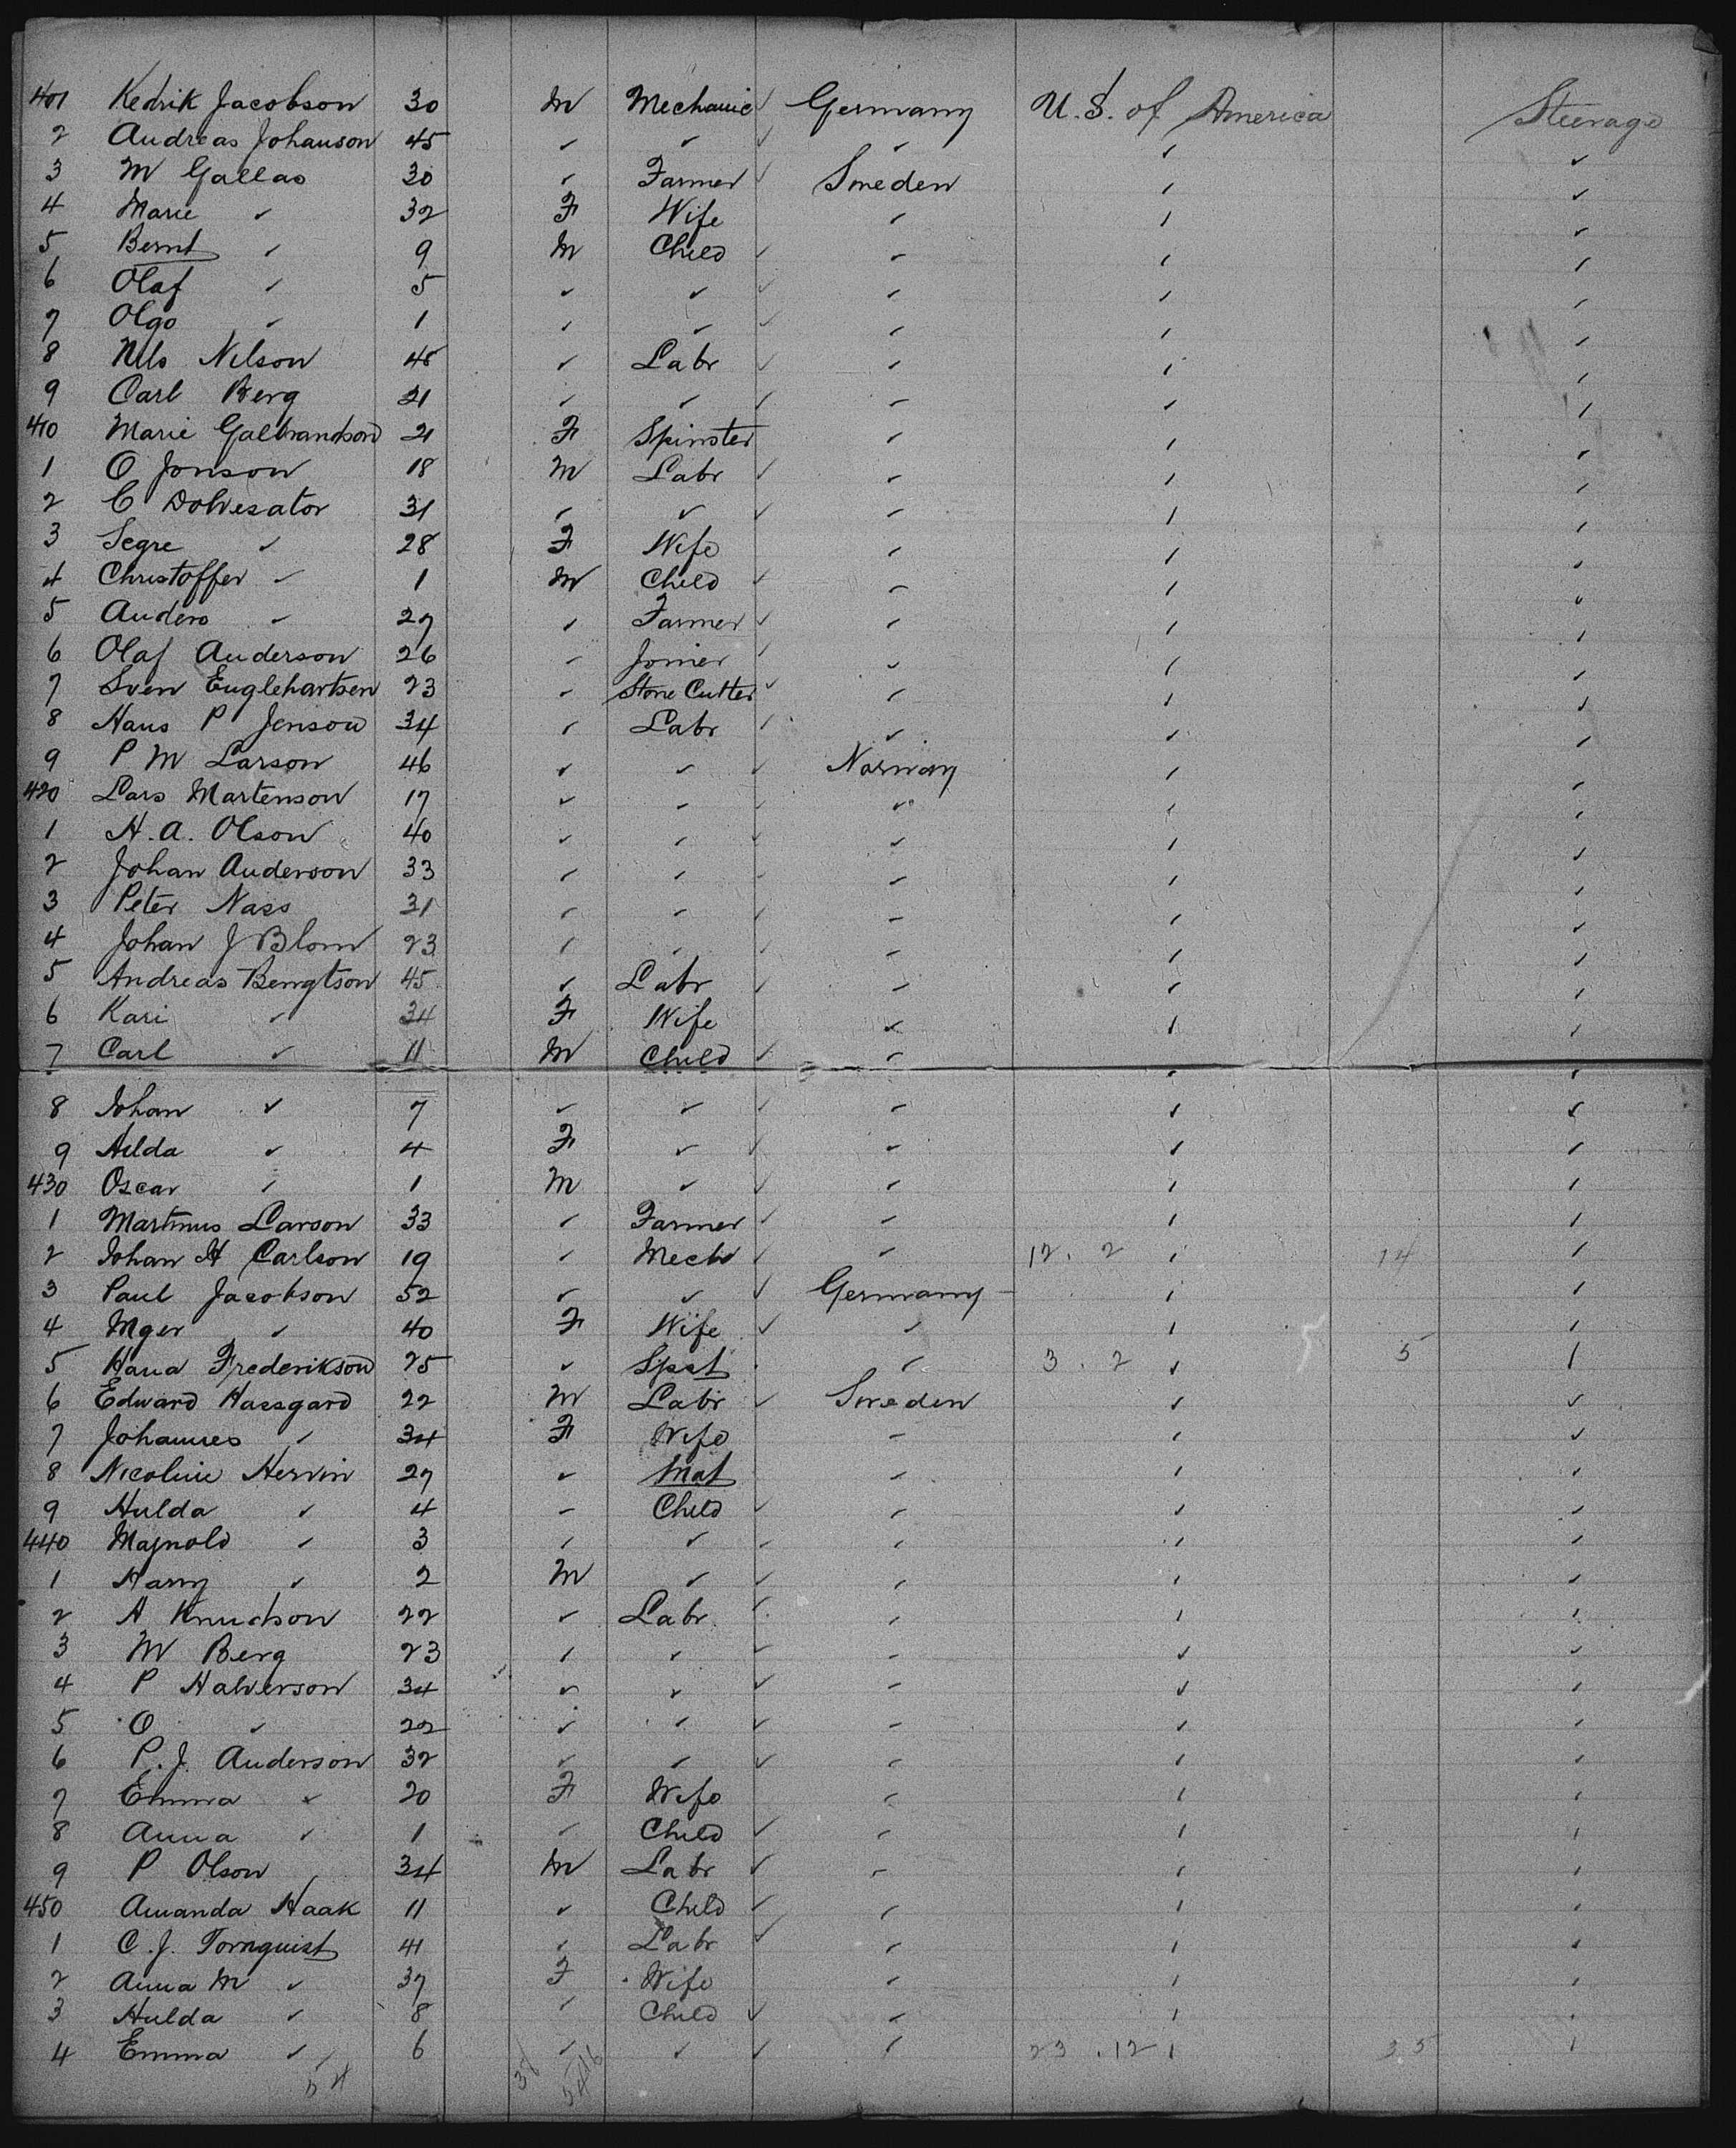 401 Kedrik Jacobson 30 M Mechanic ✓ Germany U.S. of America Steerage
2 Andreas Johanson 45 ✓ ✓ ✓ ✓ ✓ ✓
3 M Gallas 30 ✓ Farmer ✓ Sweden ✓ ✓
4 Marie ✓ 32 F Wife ✓ ✓ ✓
5 Bernt ✓ 9 M Child ✓ ✓ ✓ ✓
6 Olaf ✓ 5 ✓ ✓ ✓ ✓ ✓ ✓
7 Olgo ✓ 1 ✓ ✓ ✓ ✓ ✓ ✓
8 Nils Nilson 45 ✓ Labr ✓ ✓ ✓ ✓
9 Carl Berg 21 ✓ ✓ ✓ ✓ ✓ ✓
410 Marie Galbrandson 21 F Spinster ✓ ✓ ✓
1 O Jonson 18 M Labr ✓ ✓ ✓ ✓
2 C Dolvesator 31 ✓ ✓ ✓ ✓ ✓ ✓
3 Segre ✓ 28 F Wife ✓ ✓ ✓
4 Christoffer ✓ 1 M Child ✓ ✓ ✓ ✓
5 Anders ✓ 27 ✓ Farmer ✓ ✓ ✓ ✓
6 Olaf Anderson 26 ✓ Joiner ✓ ✓ ✓ ✓
7 Sven Euglehartsen 23 ✓ Stone Cutter ✓ ✓ ✓ ✓
8 Hans P Jenson 34 ✓ Labr ✓ ✓ ✓ ✓
9 P M Larson 46 ✓ ✓ ✓ Norway ✓ ✓
420 Lars Martenson 17 ✓ ✓ ✓ ✓ ✓ ✓
1 H.A. Olson 40 ✓ ✓ ✓ ✓ ✓ ✓
2 Johan Anderson 33 ✓ ✓ ✓ ✓ ✓ ✓
3 Peter Nass 31 ✓ ✓ ✓ ✓ ✓ ✓
4 Johan J Blom 23 ✓ ✓ ✓ ✓ ✓ ✓
5 Andreas Bengtson 45 ✓ Labr ✓ ✓ ✓ ✓
6 Kari ✓ 34 F Wife ✓ ✓ ✓
7 Carl ✓ 11 M Child ✓ ✓ ✓ ✓
8 Johan ✓ 7 ✓ ✓ ✓ ✓ ✓ ✓
9 Hilda ✓ 4 F ✓ ✓ ✓ ✓ ✓
430 Oscar ✓ 1 M ✓ ✓ ✓ ✓ ✓
1 Martinus Larson 33 ✓ Farmer ✓ ✓ ✓ ✓
2 Johan H Carlson 19 ✓ Mech ✓ ✓ 12 . 2 ✓ 14 ✓
3 Paul Jacobson 52 ✓ ✓ ✓ Germany ✓ ✓
4 Mger ✓ 40 F Wife ✓ ✓ ✓ ✓
5 Hana Frederikson 25 ✓ Spst ✓ 3 . 2 ✓ 5 ✓
6 Edward Hassgard 22 M Labr ✓ Sweden ✓ ✓
7 Johannes ✓ 34 F Wife ✓ ✓ ✓
8 Nicoline Hervin 27 ✓ Mat ✓ ✓ ✓
9 Hulda ✓ 4 ✓ Child ✓ ✓ ✓ ✓
440 Majnold ✓ 3 ✓ ✓ ✓ ✓ ✓ ✓
1 Harry ✓ 2 M ✓ ✓ ✓ ✓ ✓
2 A Knudson 22 ✓ Labr ✓ ✓ ✓ ✓
3 M Berg 23 ✓ ✓ ✓ ✓ ✓ ✓
4 P Halverson 34 ✓ ✓ ✓ ✓ ✓ ✓
5 O ✓ 22 ✓ ✓ ✓ ✓ ✓ ✓
6 P.J. Anderson 32 ✓ ✓ ✓ ✓ ✓ ✓
7 Emma ✓ 20 F Wife ✓ ✓ ✓
8 Anna ✓ 1 ✓ Child ✓ ✓ ✓ ✓
9 P Olson 34 M Labr ✓ ✓ ✓ ✓
450 Amanda Haak 11 ✓ Child ✓ ✓ ✓ ✓
1 C.J. Tornquist 41 ✓ Labr ✓ ✓ ✓ ✓
2 Anna M ✓ 37 F Wife ✓ ✓ ✓
3 Hulda ✓ 8 ✓ Child ✓ ✓ ✓ ✓
4 Emma ✓ 6 ✓ ✓ ✓ ✓ 23 . 12 ✓ 35 ✓
54 38